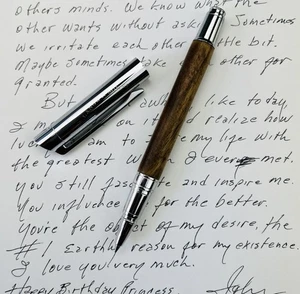 others minds. We know what the
other wants without asking. Sometimes
we irritate each other little bit.
Maybe sometimes take other for
granted.
But like today,
I on it realize how
am to my life with
the greatest I ever met.
You still fascinate and inspire me.
You influence for the better.
You're the object of my desire, the
#1 Earthly reason for my existence.
I love you very much.
Happy Birthday Princess
John